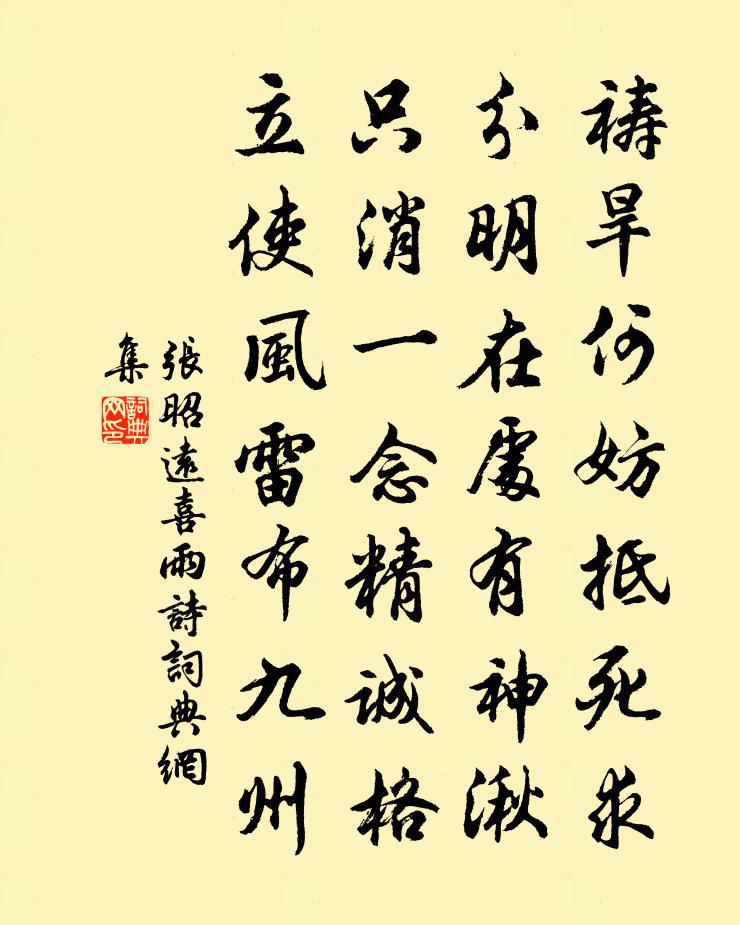 祷旱何妨抵死求
分明在處有神湫
只消一念精誠格
立使風雷布九州
張昭遠喜雨詩詞典網
集
詞典
网印